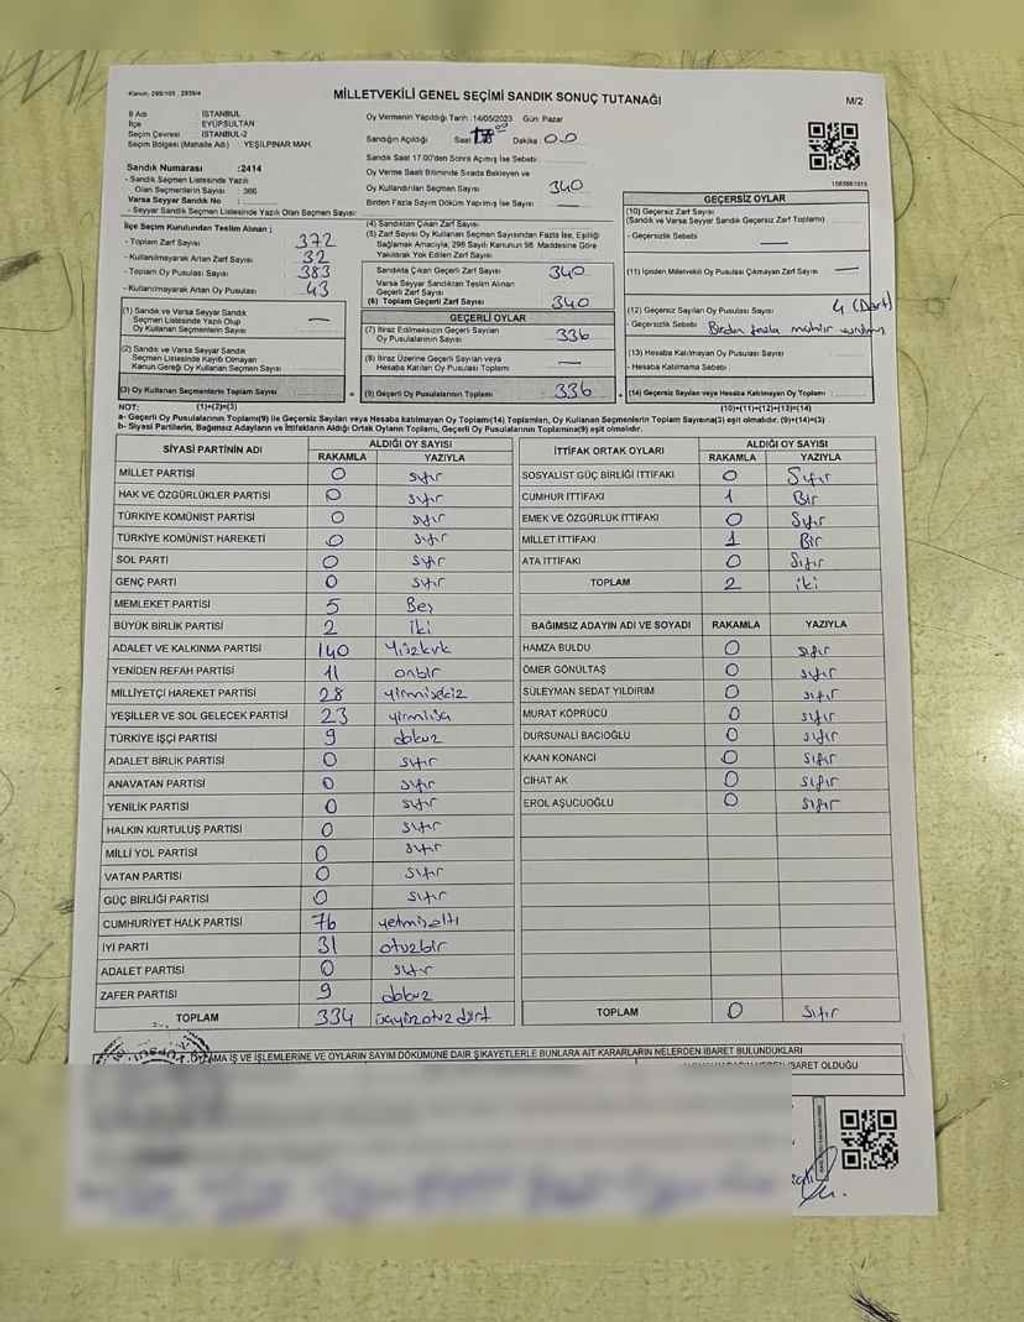 Kanun: 298/105 , 2839/4
MİLLETVEKİLİ GENEL SEÇİMİ SANDIK SONUÇ TUTANAĞI
M/2
İl Adı : İSTANBUL
İlçe : EYÜPSULTAN
Seçim Çevresi : İSTANBUL-2
Seçim Bölgesi (Mahalle Adı) : YEŞİLPINAR MAH.
Sandık Numarası :2414
- Sandık Seçmen Listesinde Yazılı
Olan Seçmenlerin Sayısı : 366
Varsa Seyyar Sandık No :
- Seyyar Sandık Seçmen Listesinde Yazılı Olan Seçmen Sayısı:
İlçe Seçim Kurulundan Teslim Alınan ;
- Toplam Zarf Sayısı : 372
- Kullanılmayarak Artan Zarf Sayısı : 32
- Toplam Oy Pusulası Sayısı : 383
- Kullanılmayarak Artan Oy Pusulası : 43
(1) Sandık ve Varsa Seyyar Sandık
Seçmen Listesinde Yazılı Olup
Oy Kullanan Seçmenlerin Sayısı : —
(2) Sandık ve Varsa Seyyar Sandık
Seçmen Listesinde Kayıtlı Olmayan
Kanun Gereği Oy Kullanan Seçmen Sayısı :
(3) Oy Kullanan Seçmenlerin Toplam Sayısı :
Oy Vermenin Yapıldığı Tarih :14/05/2023 Gün: Pazar
Sandığın Açıldığı Saat : Dakika : 00
Sandık Saat 17.00'den Sonra Açılmış İse Sebebi :
Oy Verme Saati Bitiminde Sırada Bekleyen ve
Oy Kullandırılan Seçmen Sayısı : 340
Birden Fazla Sayım Döküm Yapılmış İse Sayısı : —
(4) Sandıktan Çıkan Zarf Sayısı :
(5) Zarf Sayısı Oy Kullanan Seçmen Sayısından Fazla İse, Eşitliği
Sağlamak Amacıyla, 298 Sayılı Kanunun 98. Maddesine Göre
Yakılarak Yok Edilen Zarf Sayısı :
Sandıkta Çıkan Geçerli Zarf Sayısı : 340
Varsa Seyyar Sandıktan Teslim Alınan
Geçerli Zarf Sayısı :
(6) Toplam Geçerli Zarf Sayısı : 340
GEÇERLİ OYLAR
(7) İtiraz Edilmeksizin Geçerli Sayılan
Oy Pusulalarının Sayısı : 336
(8) İtiraz Üzerine Geçerli Sayılan veya
Hesaba Katılan Oy Pusulası Toplamı : —
(9) Geçerli Oy Pusulalarının Toplamı : 336
GEÇERSİZ OYLAR
(10) Geçersiz Zarf Sayısı
(Sandık ve Varsa Seyyar Sandık Geçersiz Zarf Toplamı) :
- Geçersizlik Sebebi : —
(11) İçinden Milletvekili Oy Pusulası Çıkmayan Zarf Sayısı : —
(12) Geçersiz Sayılan Oy Pusulası Sayısı : 4 (Dört)
- Geçersizlik Sebebi : Birden fazla mühür
(13) Hesaba Katılmayan Oy Pusulası Sayısı :
- Hesaba Katılmama Sebebi :
(14) Geçersiz Sayılan veya Hesaba Katılmayan Oy Toplamı :
NOT: (1)+(2)=(3) (10)+(11)+(12)+(13)=(14)
a- Geçerli Oy Pusulalarının Toplamı(9) ile Geçersiz Sayılan veya Hesaba katılmayan Oy Toplamı(14) Toplamları, Oy Kullanan Seçmenlerin Toplam Sayısına(3) eşit olmalıdır. (9)+(14)=(3)
b- Siyasi Partilerin, Bağımsız Adayların ve İttifakların Aldığı Oyların Toplamı, Geçerli Oy Pusulalarının Toplamına(9) eşit olmalıdır.
SİYASİ PARTİNİN ADI ALDIĞI OY SAYISI
RAKAMLA YAZIYLA
MİLLET PARTİSİ 0 sıfır
HAK VE ÖZGÜRLÜKLER PARTİSİ 0 sıfır
TÜRKİYE KOMÜNİST PARTİSİ 0 sıfır
TÜRKİYE KOMÜNİST HAREKETİ 0 sıfır
SOL PARTİ 0 sıfır
GENÇ PARTİ 0 sıfır
MEMLEKET PARTİSİ 5 Beş
BÜYÜK BİRLİK PARTİSİ 2 İki
ADALET VE KALKINMA PARTİSİ 140 Yüzkırk
YENİDEN REFAH PARTİSİ 11 onbir
MİLLİYETÇİ HAREKET PARTİSİ 28 yirmisekiz
YEŞİLLER VE SOL GELECEK PARTİSİ 23 yirmiüç
TÜRKİYE İŞÇİ PARTİSİ 9 dokuz
ADALET BİRLİK PARTİSİ 0 sıfır
ANAVATAN PARTİSİ 0 sıfır
YENİLİK PARTİSİ 0 sıfır
HALKIN KURTULUŞ PARTİSİ 0 sıfır
MİLLİ YOL PARTİSİ 0 sıfır
VATAN PARTİSİ 0 sıfır
GÜÇ BİRLİĞİ PARTİSİ 0 sıfır
CUMHURİYET HALK PARTİSİ 76 yetmişaltı
İYİ PARTİ 31 otuzbir
ADALET PARTİSİ 0 sıfır
ZAFER PARTİSİ 9 dokuz
TOPLAM 334 üçyüzotuz dört
İTTİFAK ORTAK OYLARI ALDIĞI OY SAYISI
RAKAMLA YAZIYLA
SOSYALİST GÜÇ BİRLİĞİ İTTİFAKI 0 Sıfır
CUMHUR İTTİFAKI 1 Bir
EMEK VE ÖZGÜRLÜK İTTİFAKI 0 Sıfır
MİLLET İTTİFAKI 1 Bir
ATA İTTİFAKI 0 Sıfır
TOPLAM 2 iki
BAĞIMSIZ ADAYIN ADI VE SOYADI RAKAMLA YAZIYLA
HAMZA BULDU 0 sıfır
ÖMER GÖNÜLTAŞ 0 sıfır
SÜLEYMAN SEDAT YILDIRIM 0 sıfır
MURAT KÖPRÜCÜ 0 sıfır
DURSUNALİ BACIOĞLU 0 sıfır
KAAN KONANCI 0 sıfır
CİHAT AK 0 sıfır
EROL AŞUCUOĞLU 0 sıfır
TOPLAM 0 Sıfır
İŞ VE İŞLEMLERİNE VE OYLARIN SAYIM DÖKÜMÜNE DAİR ŞİKAYETLERLE BUNLARA AİT KARARLARIN NELERDEN İBARET BULUNDUKLARI
İBARET OLDUĞU